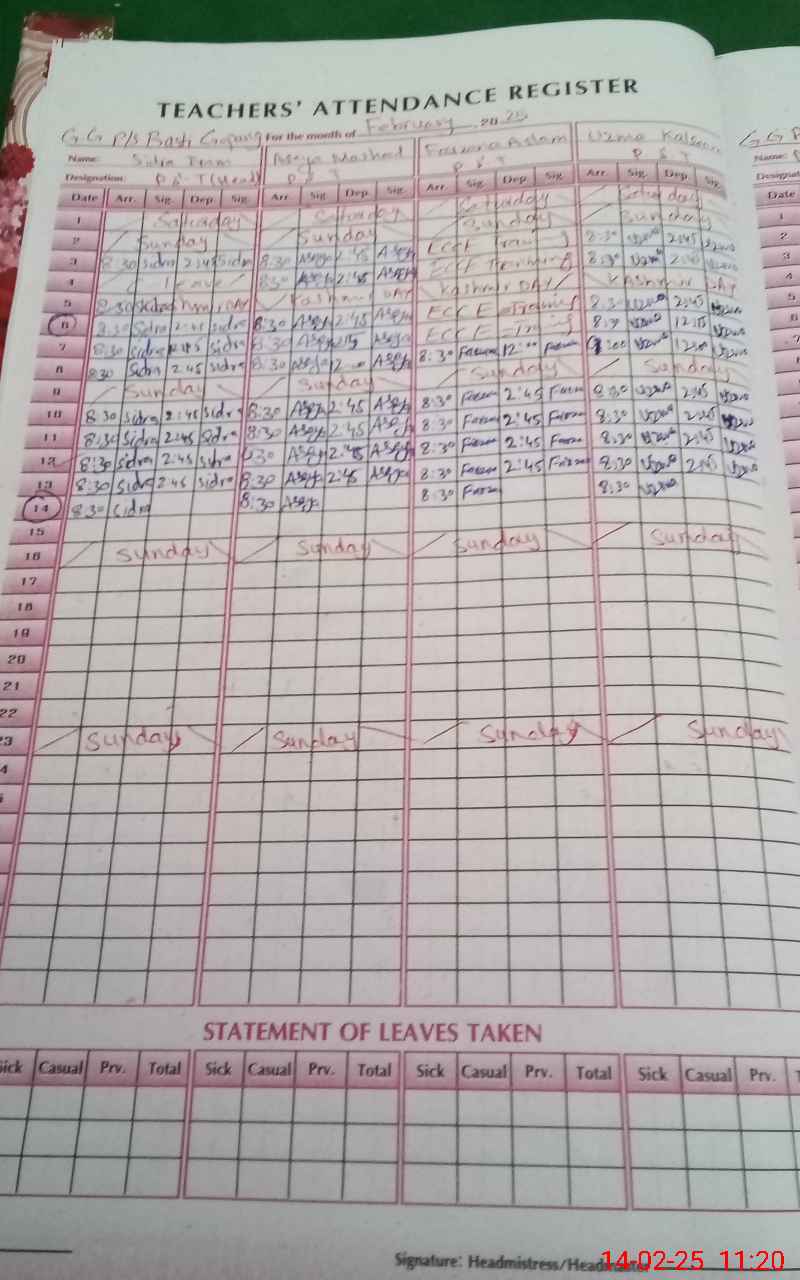 TEACHERS' ATTENDANCE REGISTER
G.G P/S Basti For the month of February 2025
Name: Sidra Aseya Rashed Farzana Aslam Uzma Kalsoom
Designation: P.S.T (Head) P.S.T P.S.T P.S.T
Date Arr. Sig. Dep. Sig. Arr. Sig. Dep. Sig. Arr. Sig. Dep. Sig. Arr. Sig. Dep. Sig.
1 Saturday Saturday Saturday Saturday
2 Sunday Sunday Sunday Sunday
3 8:30 Sidra 2:45 Sidra 8:30 Aseya 2:45 Aseya ECCE Training 8:30 Uzma 2:45 Uzma
4 Leave 8:30 Aseya 2:45 Aseya ECCE Training 8:30 Uzma 2:45 Uzma
5 Kashmir DAY Kashmir DAY Kashmir DAY
6 8:30 Sidra 2:45 Sidra 8:30 Aseya 2:45 Aseya ECCE Training 8:30 Uzma 2:45 Uzma
7 8:30 Sidra Sidra 8:30 Aseya Aseya ECCE Training 8:30 Uzma Uzma
8 8:30 Sidra 2:45 Sidra 8:30 Aseya 12:00 Aseya 8:30 Farzan 12:00 Farzan Uzma 12:00 Uzma
9 Sunday Sunday Sunday Sunday
10 8:30 Sidra 2:45 Sidra 8:30 Aseya 2:45 Aseya 8:30 Farzan 2:45 Farzan 8:30 Uzma 2:45 Uzma
11 8:30 Sidra 2:45 Sidra 8:30 Aseya 2:45 Aseya 8:30 Farzan 2:45 Farzan 8:30 Uzma 2:45 Uzma
12 8:30 Sidra 2:45 Sidra 8:30 Aseya 2:45 Aseya 8:30 Farzan 2:45 Farzan 8:30 Uzma 2:45 Uzma
13 8:30 Sidra 2:45 Sidra 8:30 Aseya 2:45 Aseya 8:30 Farzan 2:45 Farzan 8:30 Uzma 2:45 Uzma
14 8:30 Sidra 8:30 Aseya 8:30 Farzan 8:30 Uzma
15
16 Sunday Sunday Sunday Sunday
17
18
19
20
21
22
23 Sunday Sunday Sunday Sunday
STATEMENT OF LEAVES TAKEN
Sick Casual Prv. Total Sick Casual Prv. Total Sick Casual Prv. Total Sick Casual Prv.
Signature: Headmistress/Headmaster
14-02-25 11:20